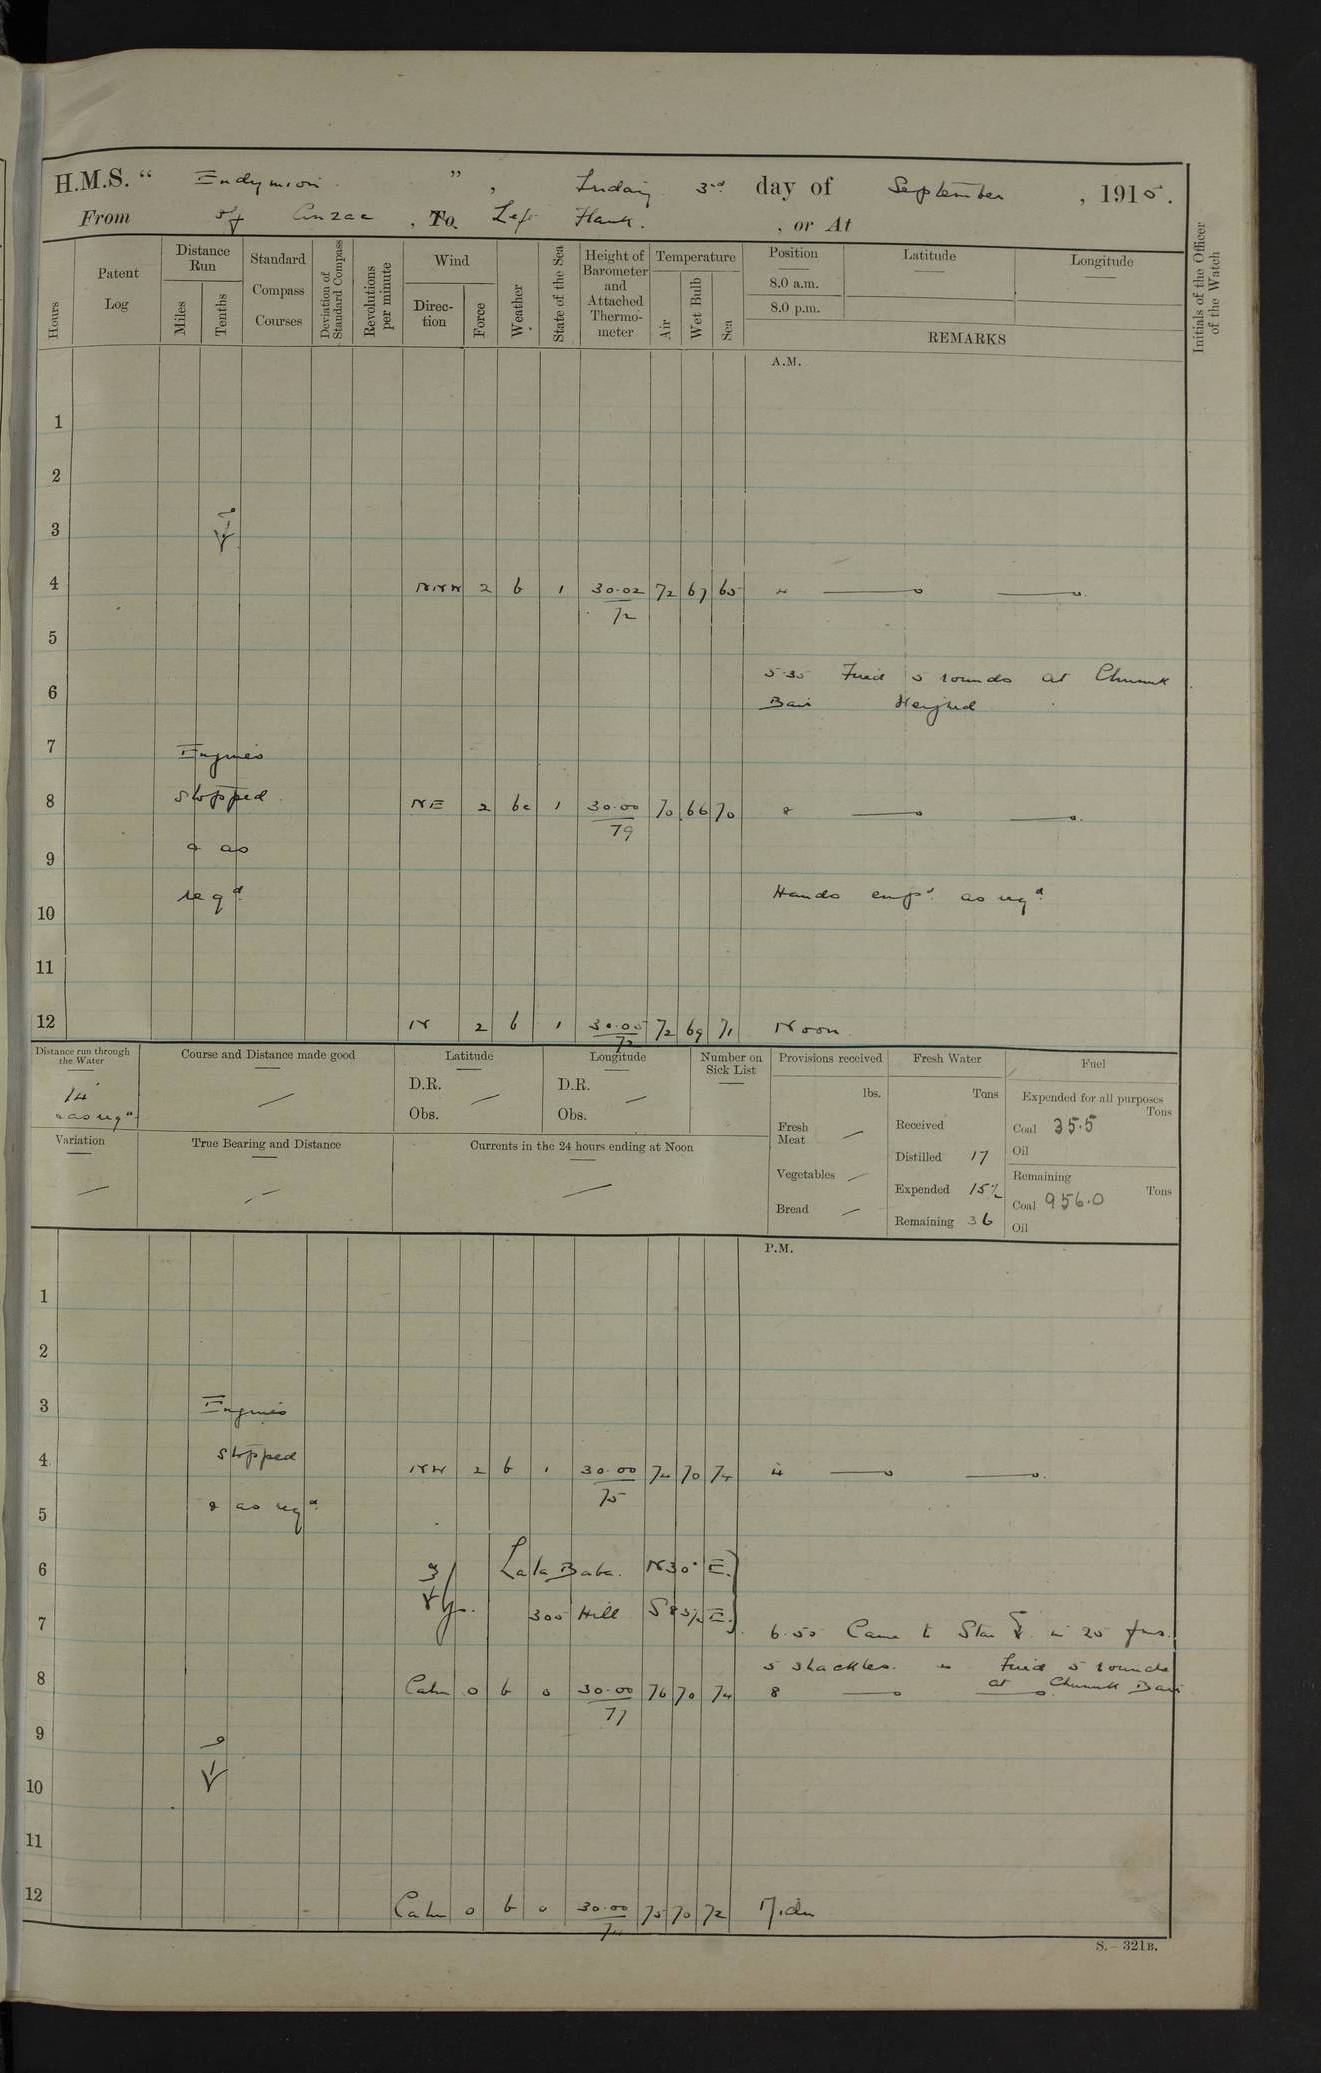 H.M.S. " Endymion ", Friday 3rd day of September, 1915.
From off Anzac, To Left Flank., or At
Hours
Patent Log
Distance Run
Miles
Tenths
Standard Compass Courses
Deviation of Standard Compass
Revolutions per minute
Wind
Direction
Force
Weather
State of the Sea
Height of Barometer and Attached Thermometer
Temperature
Air
Wet Bulb
Sea
Position
8.0 a.m.
8.0 p.m.
Latitude
Longitude
REMARKS
Initials of the Officer of the Watch
A.M.
1
2
3
4 NNW 2 b 1 30.02 72 67 65 4
72
5
5.35 Fired 5 rounds at Chunuk
6
Bair
7
Engines
8 stopped NE 2 bc 1 30.00 70 66 70 8
79
9 & as
10 reqd. Hands empd. as reqd.
11
12 N 2 b 1 30.00 72 69 71 Noon
72
Distance run through the Water
14
& as reqd.
Course and Distance made good
Latitude
D.R.
Obs.
Longitude
D.R.
Obs.
Number on Sick List
Provisions received
lbs.
Fresh Meat
Vegetables
Bread
Fresh Water
Tons
Received
Distilled 17
Expended 15½
Remaining 36
Fuel
Expended for all purposes
Tons
Coal 35.5
Oil
Remaining
Tons
Coal 956.0
Oil
Variation
True Bearing and Distance
Currents in the 24 hours ending at Noon
P.M.
1
2
3 Engines
4 stopped NW 2 b 1 30.00 74 70 74 4
75
5 & as reqd.
6 Lala Baba. N30° E.
7 300 Hill S 83½ E.
6.50 Came to Star in 20 fms.
5 shackles. Fired 5 rounds
at Chunuk Bair
8 Calm 0 b 0 30.00 76 70 74 8
77
9
10
11
12 Calm 0 b 0 30.00 75 70 72 Midn
S.–321B.